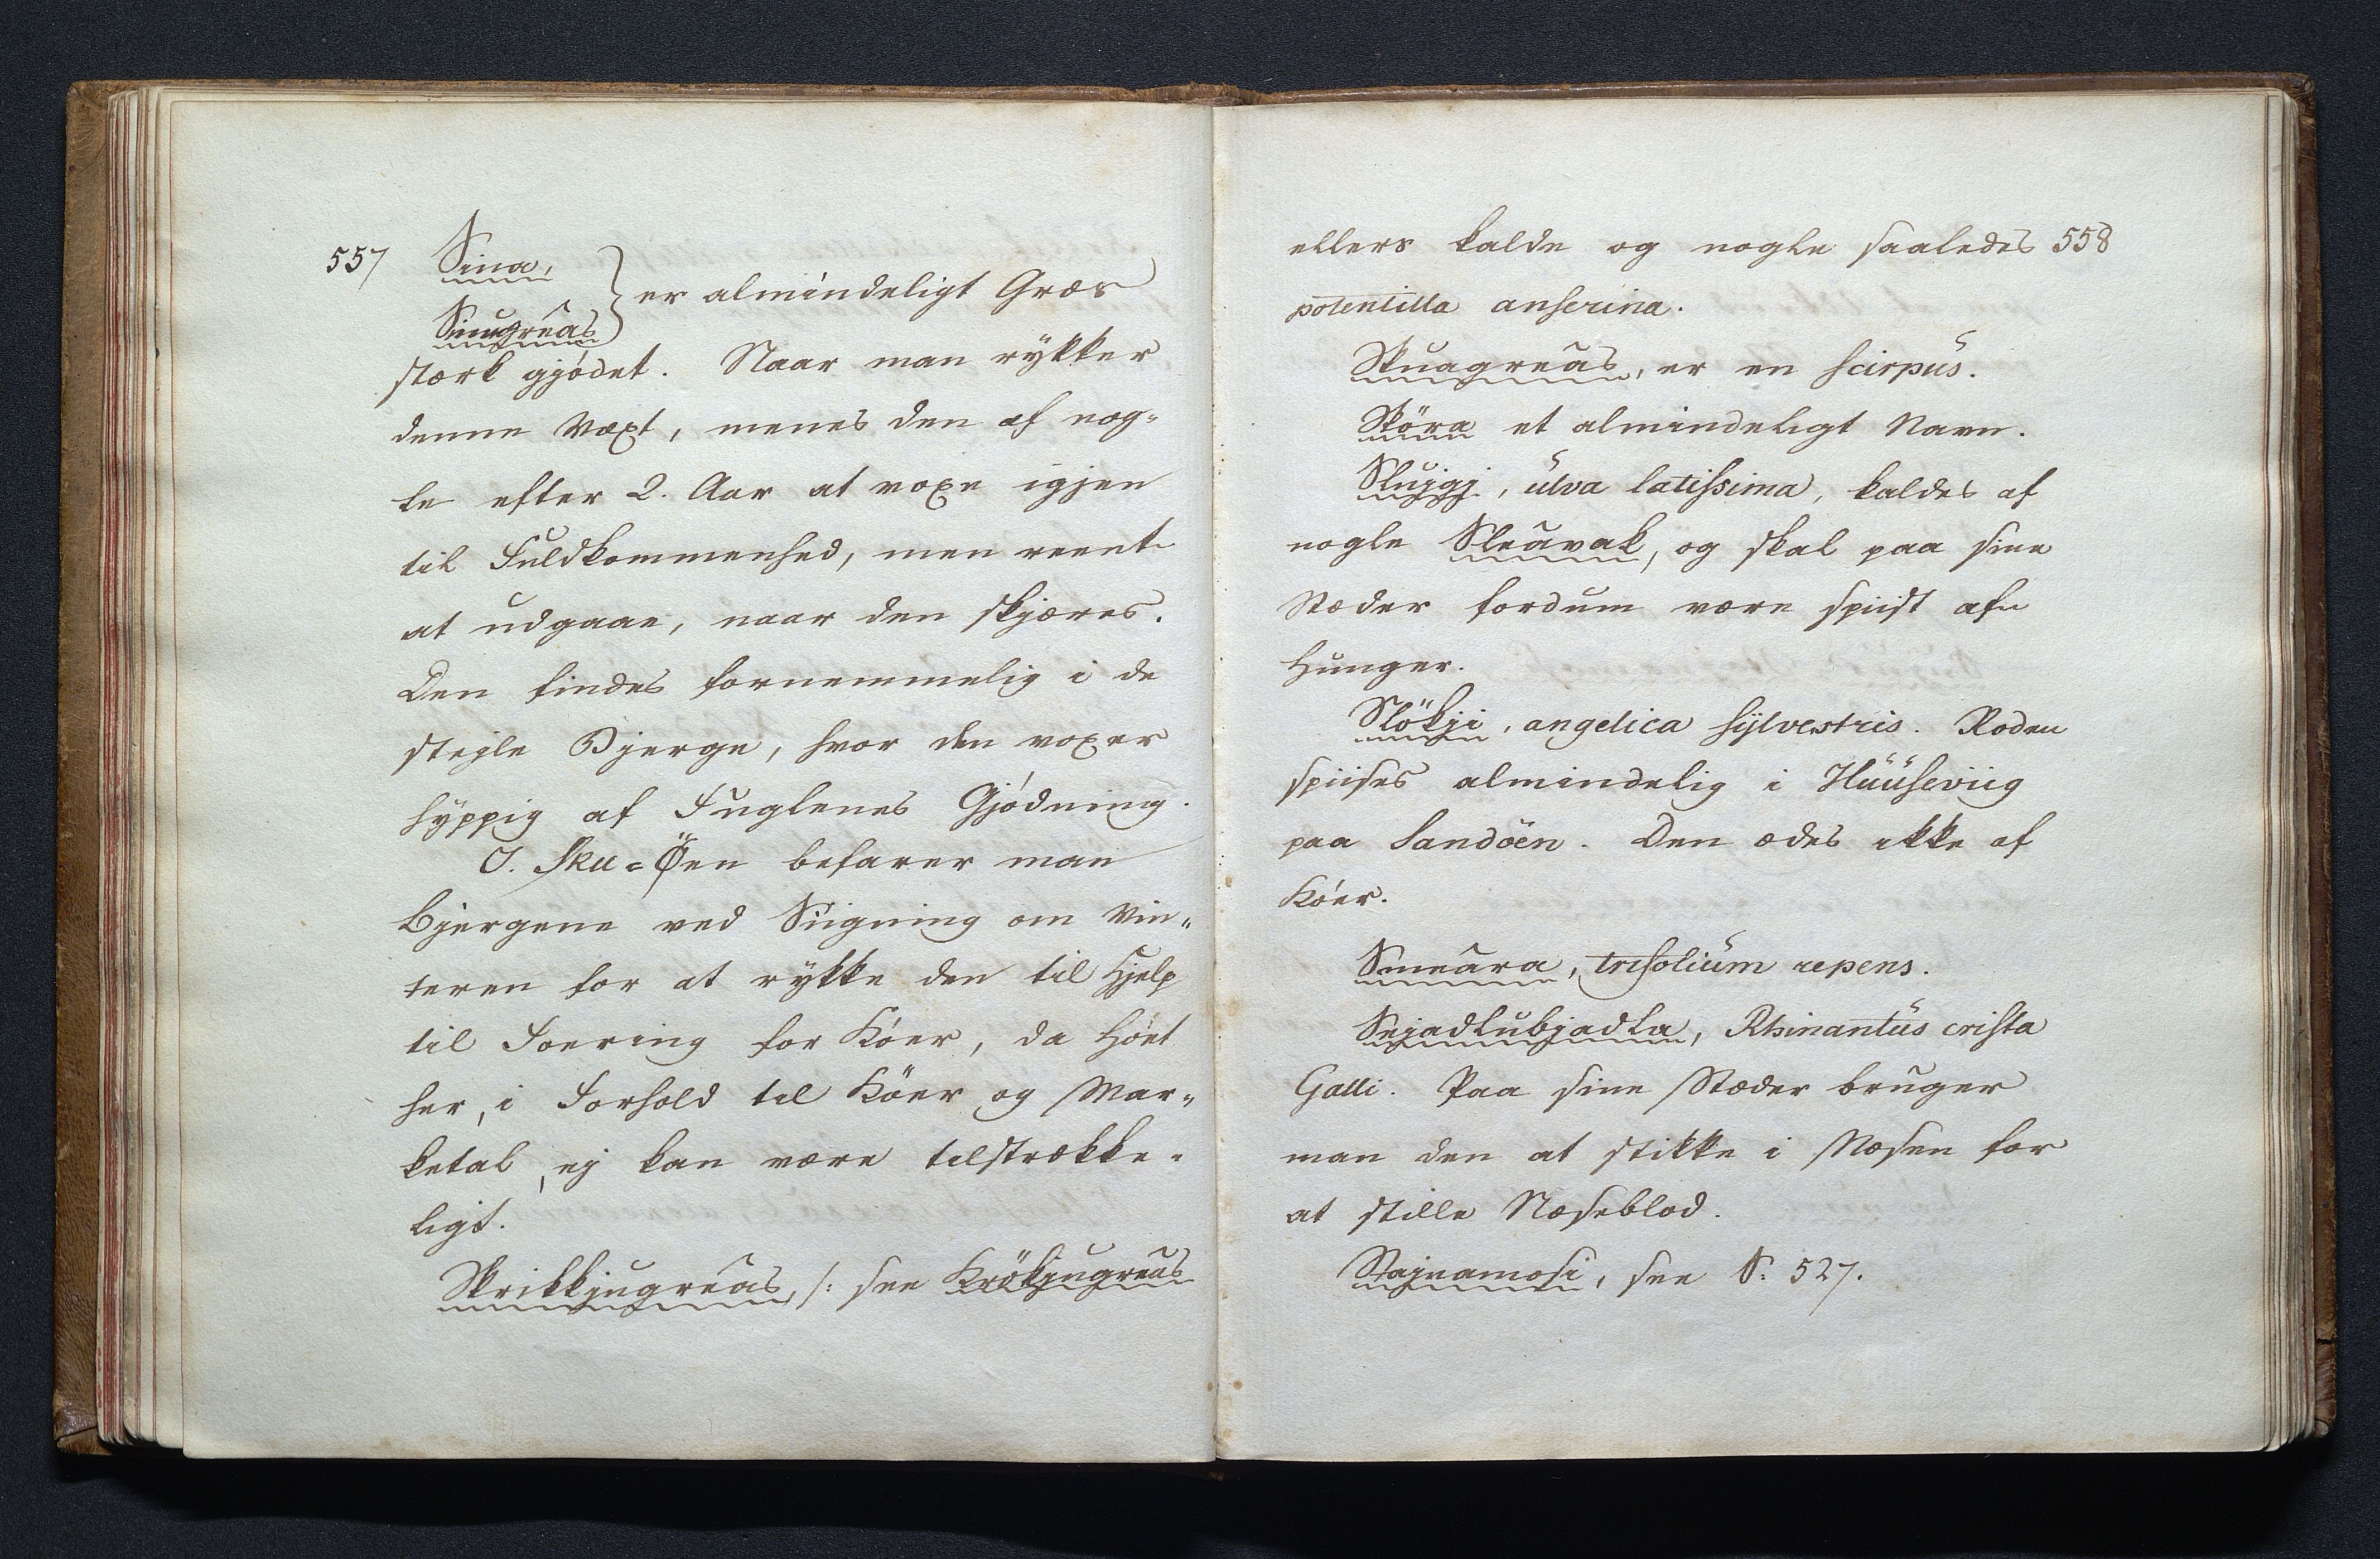 557 Sina,
Sinugreâs } er almindeligt Græs
stærk gjødet. Naar man rykker
denne Væxt, menes den af nog-
le efter 2. Aar at voxe igjen
til Fuldkommenhed, men reent
at udgaae, naar den skjæres.
Den findes fornemmelig i de
stejle Bjerge, hvor den voxer
hyppig af Fuglenes Gjødning.
I. Sku-Öen befarer man
Bjergene ved Siigning om Vin-
teren for at rykke den til Hjelp
til Foering for Køer, da Høet
her, i Forhold til Köer og Mar-
ketal, ej kan være tilstrække-
ligt.
Skrikkjugreâs, /: see Krökjugreâs
ellers kalde og nogle saaledes 558
potentilla anserina.
Skuagreâs, er en scirpus.
Sköra et almindeligt Navn.
Slujgj, ulva latissima, kaldes af
nogle Sleâvak, og skal paa sine
Stæder fordum være spiist af
Hunger.
Slökji, angelica sylvestris. Roden
spiises almindelig i Huuseviig
paa Sandöen. Den ædes ikke af
Køer.
Smeâra, trifolium repens.
Snjadlubjadla, Rhinantus crista
Galli. Paa sine Stæder bruger
man den at stikke i Næsen for
at stille Næseblod.
Stajnamosi, see N: 527.